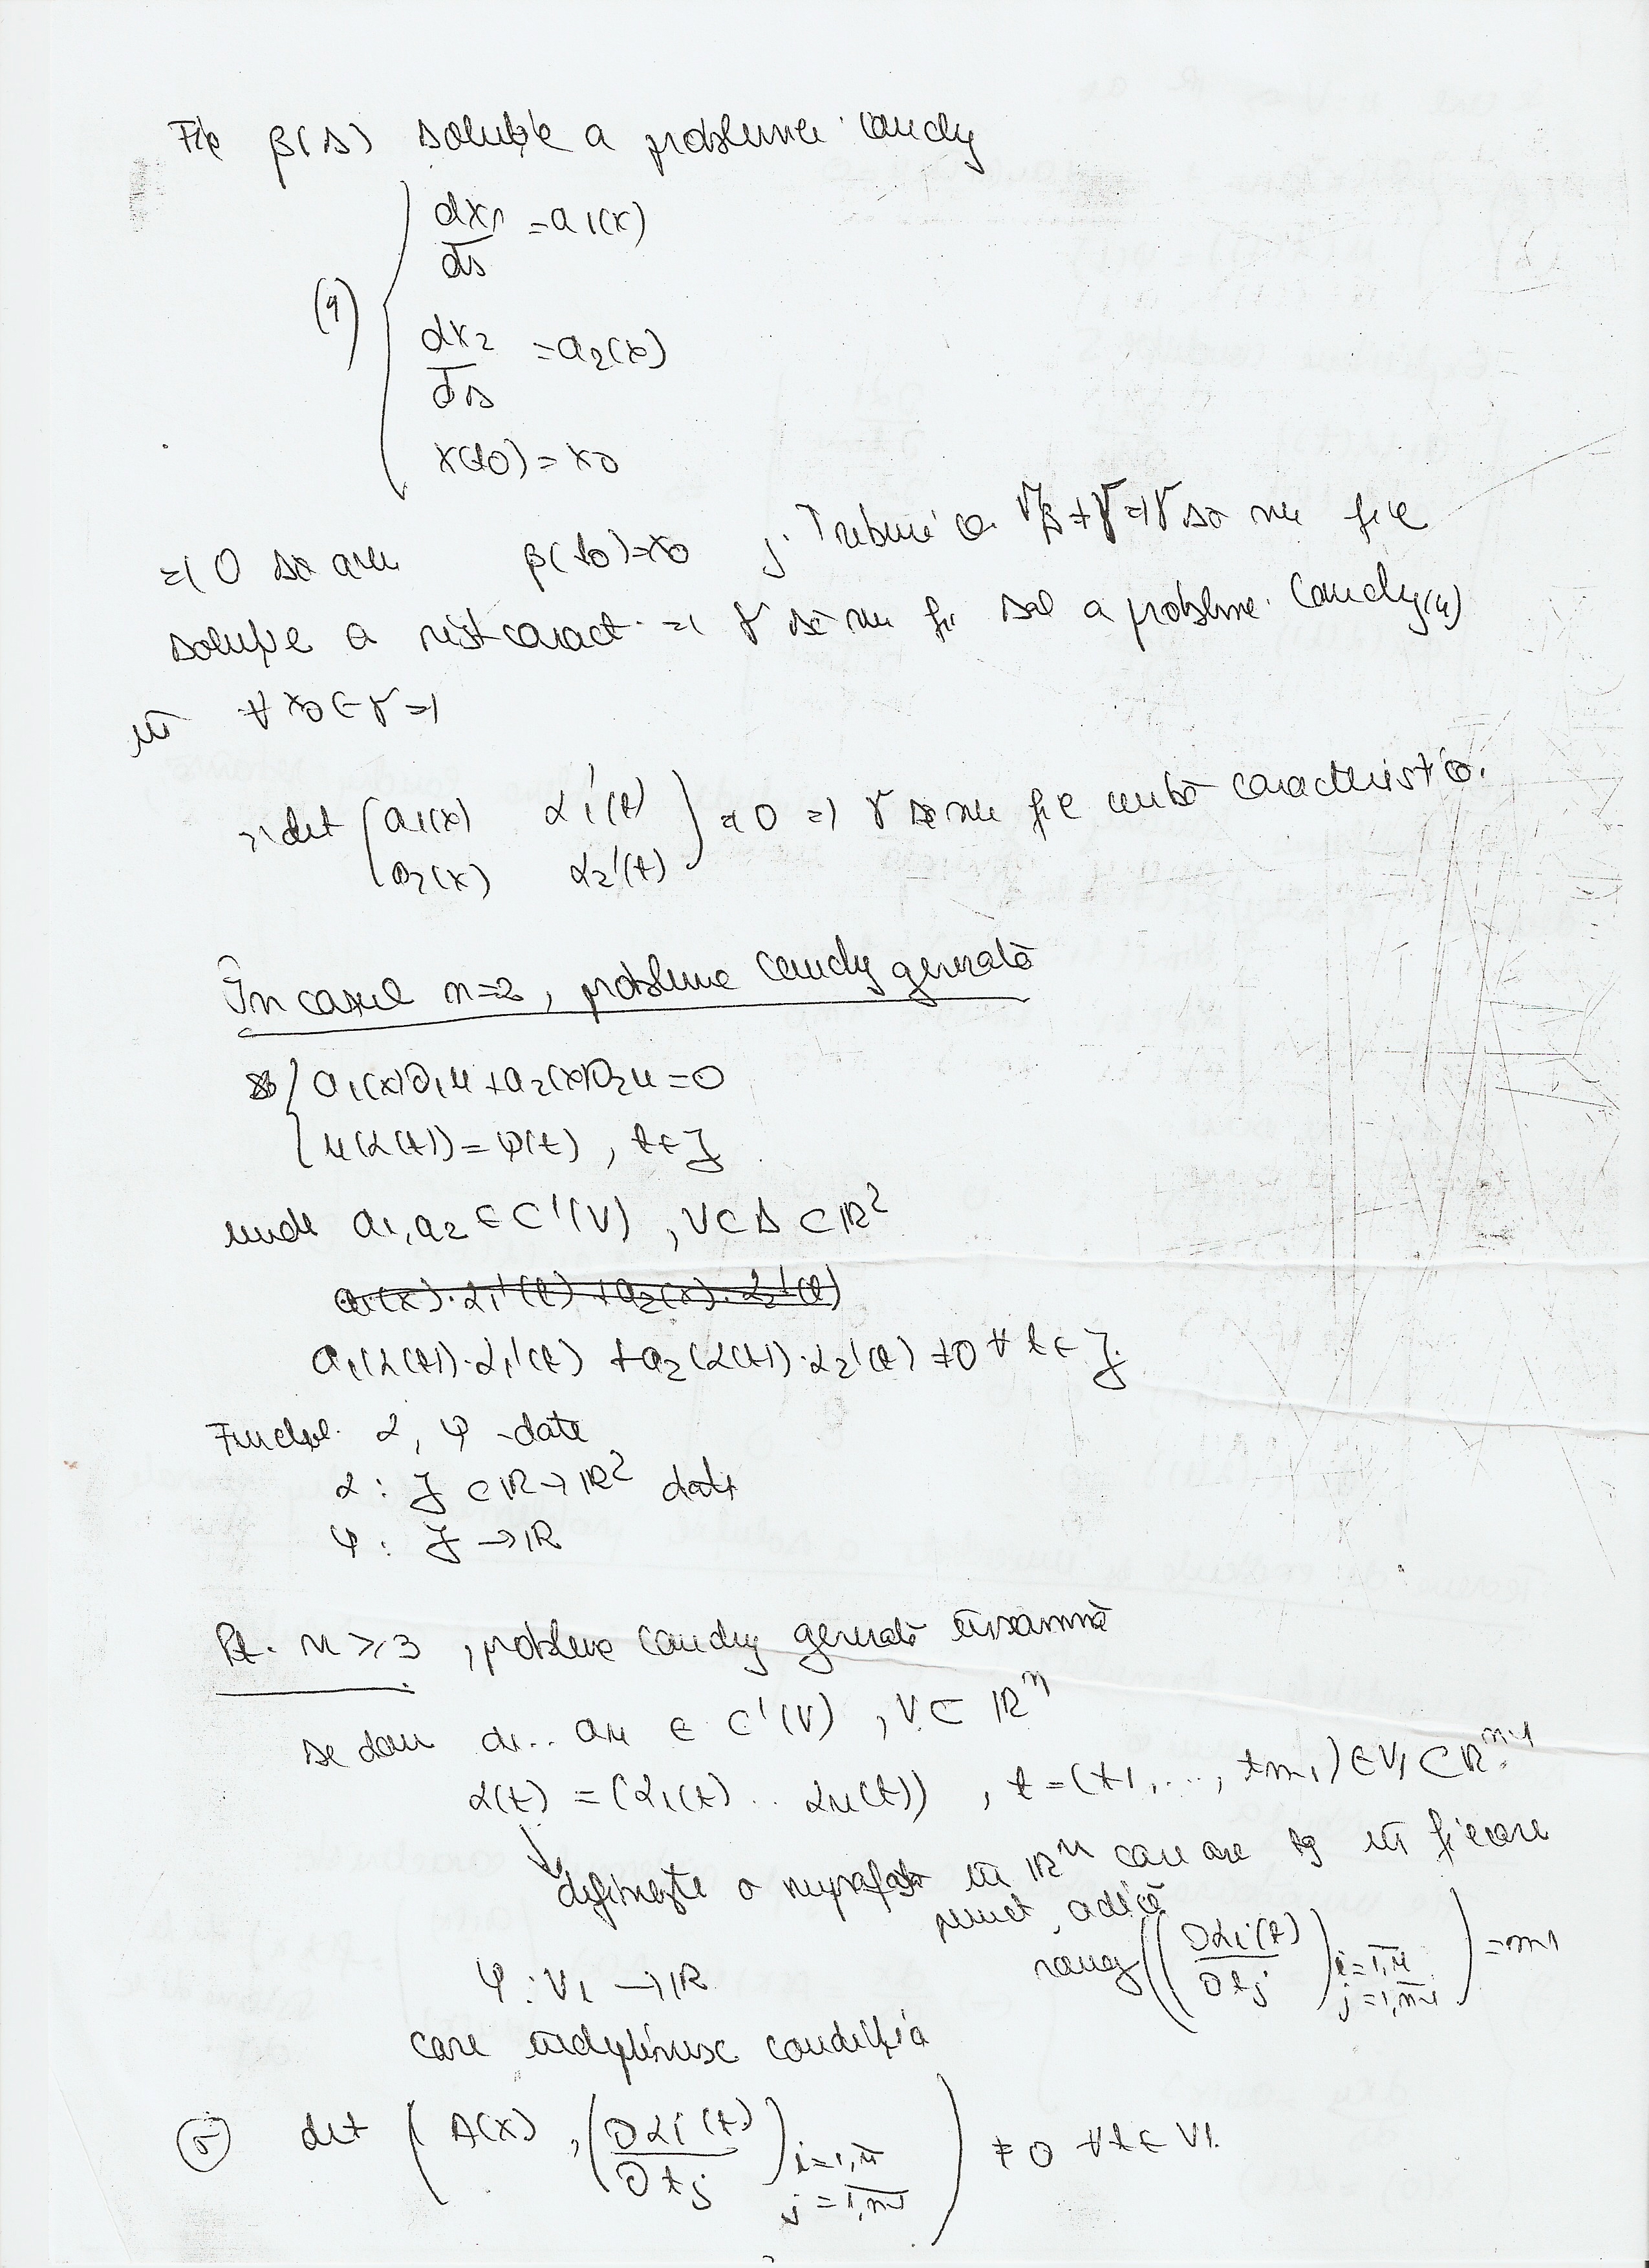 Fie β(s) soluție a problemei Cauchy
(4) { dx1/ds = a1(x)
dx2/ds = a2(x)
x(s0) = x0
=> O să am β(s0)=x0 ; Trebuie ca γβ ≠ γ => γ să nu fie
soluție a sist caract. => γ să nu fie sol a probleme. Cauchy (4)
în ∀ x0 ∈ γ =>
=> det ( a1(x) α1'(t)
a2(x) α2'(t) ) ≠ 0 => γ să nu fie curbă caracteristică.
În cazul n=2, probleme Cauchy generală
{ a1(x)D1u + a2(x)D2u = 0
u(α(t)) = φ(t) , t∈J
unde a1, a2 ∈ C'(V) , V⊂Δ⊂ℝ²
a1(x)·α1'(t) + a2(x)·α2'(t)
a1(α(t))·α1'(t) + a2(α(t))·α2'(t) ≠ 0 ∀ t∈J
Funcțiil. α, φ - date
α : J ⊂ℝ→ℝ² dată
φ : J →ℝ
Pt. n ≥ 3 , probleme Cauchy generală înseamnă
se dau a1... an ∈ C'(V) , V⊂ℝⁿ
α(t) = (α1(t) .. αn(t)) , t=(t1,..., tn-1) ∈V1⊂ℝⁿ⁻¹
↓ definește o suprafață în ℝⁿ care are tg în fiecare
punct, adică
rang ( (Dαi(t)/Dtj) i=1,n j=1,n-1 ) = n-1
φ : V1 →ℝ
care îndeplinesc condiția
(5) det ( A(x) , (Dαi(t)/Dtj) i=1,n j=1,n-1 ) ≠ 0 ∀t∈V1.